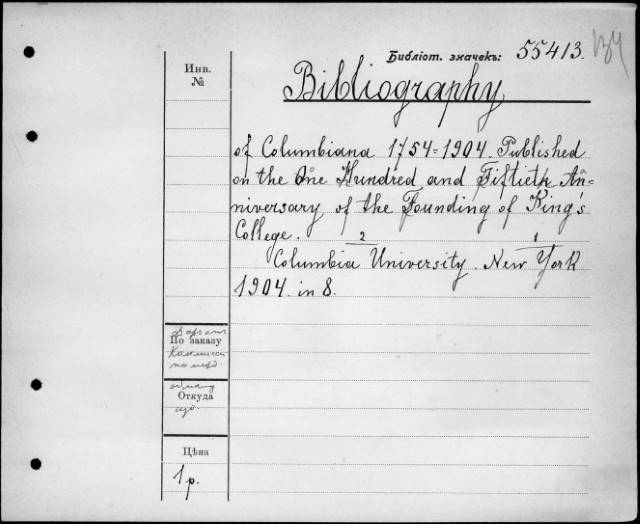 Библіот. значекъ: 55413.
Инв.
№
Bibliography
of Columbiana 1754-1904. Published
on the One Hundred and Fiftieth An-
niversary of the Founding of King's
College.
2 1
Columbia University. New York
1904. in 8.
По заказу
Откуда
Цѣна
1 р.